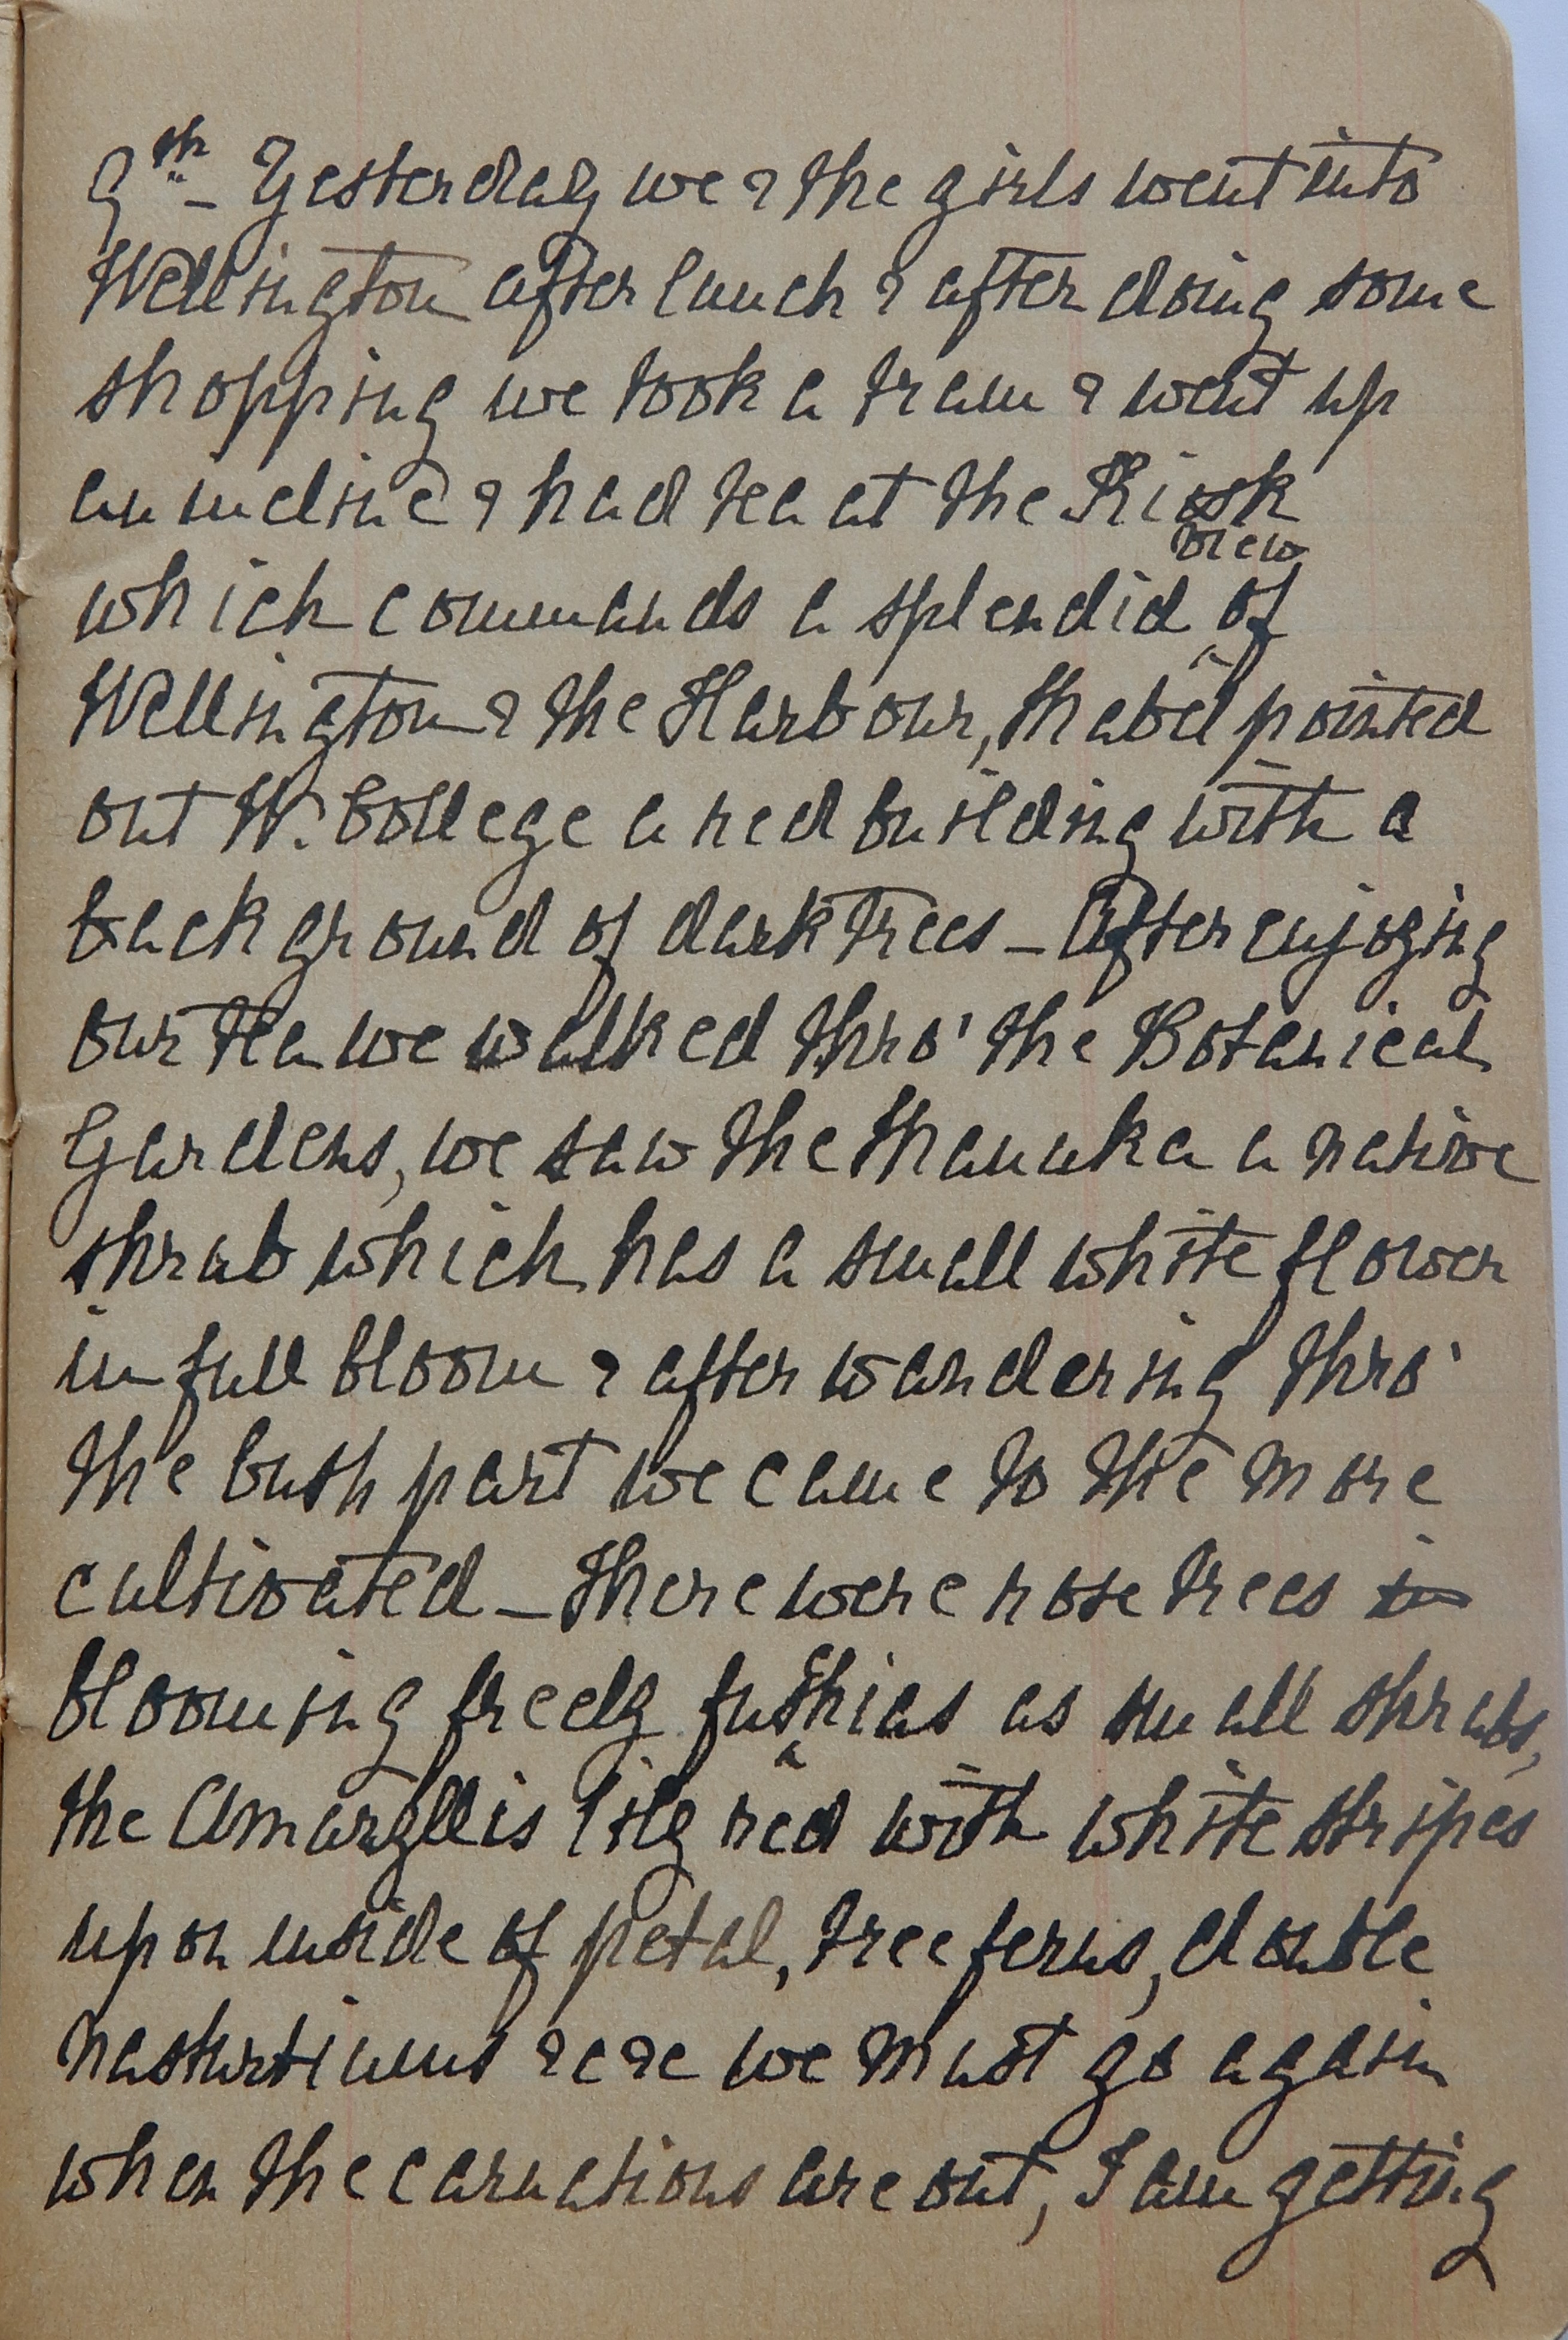 9th - Yesterday we & the girls went into
Wellington after lunch & after doing some
shopping we took a tram & went up
an incline & had tea at the Kiosk
which commands a splendid view of
Wellington & the Harbour, Mabel pointed
out W. College a red building with a
back ground of dark trees - After enjoying
our tea we walked thro' the Botanical
Gardens, we saw the Manuka a native
shrub which has a small white flower
in full bloom & after wandering thro'
the bush part we came to the more
cultivated - There were rose trees in
blooming freely fuschias as small shrubs,
the Amaryllis lily red with white stripes
upon inside of petal, tree ferns, double
nasturtiums &c &c we must go again
when the carnations are out, I am getting